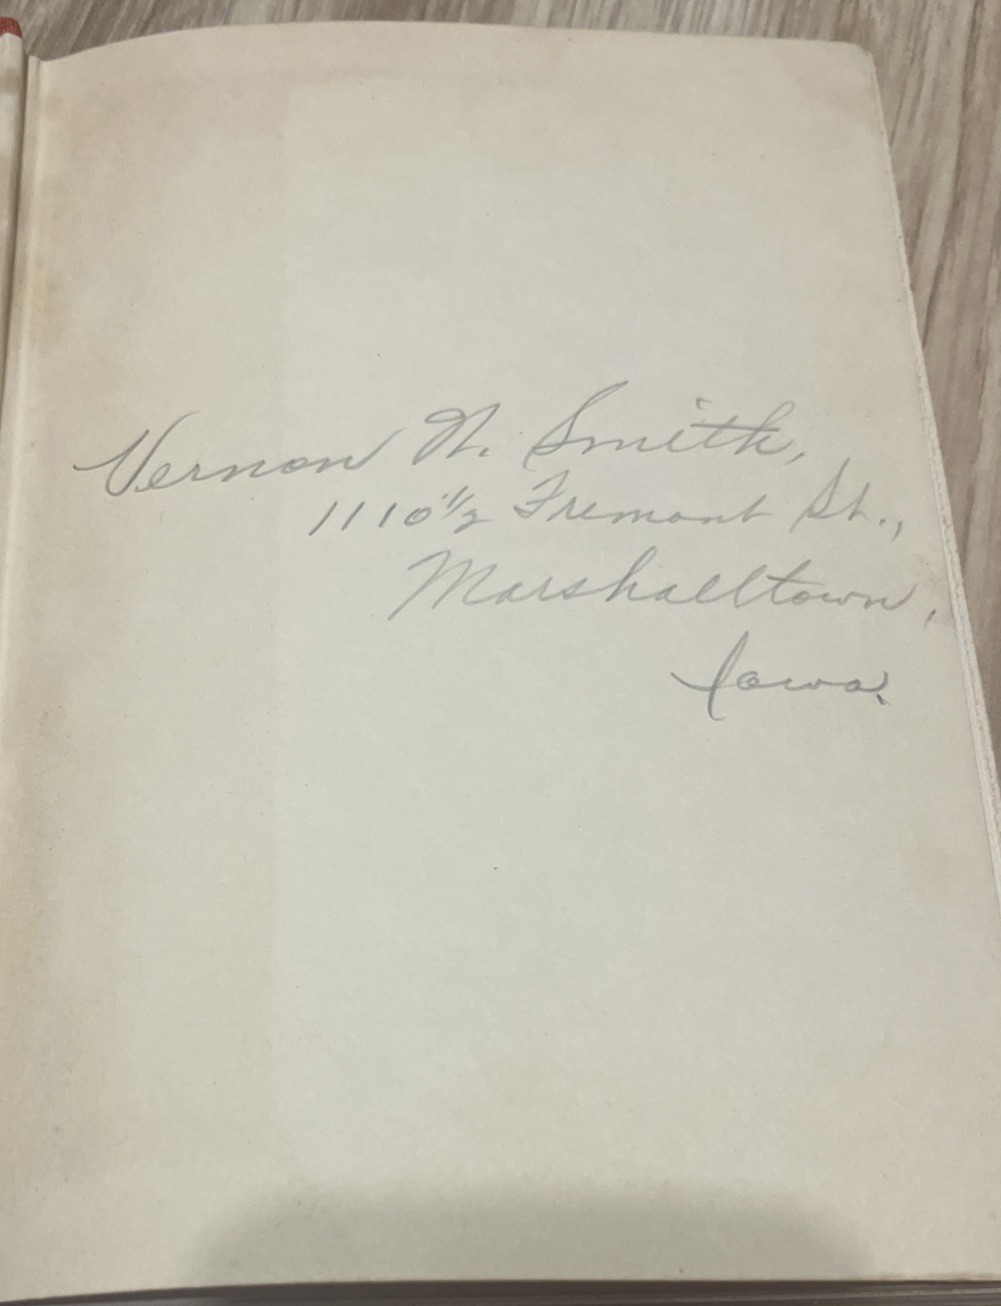 Vernon N. Smith,
1110 1/2 Fremont St.,
Marshalltown,
Iowa.